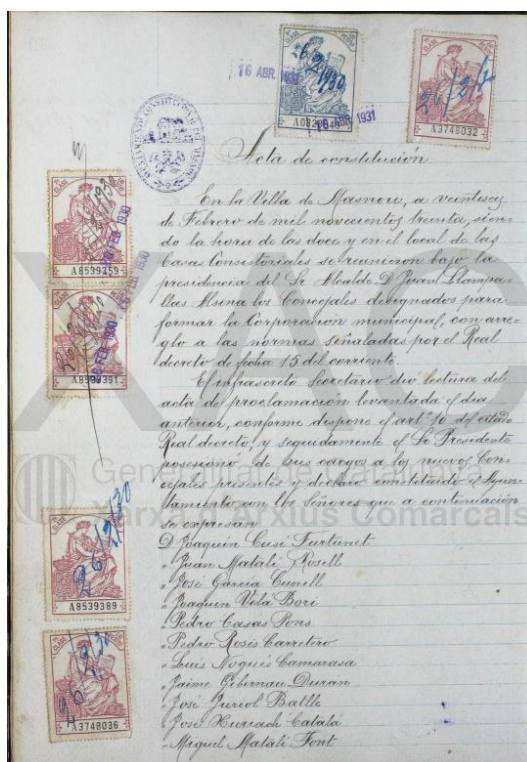 16 ABR. 1931
16 ABR 1931
26/2/1930
A3748032
Acta de constitución
En la Villa de Masnou, a veintiseis
de Febrero de mil novecientos treinta, sien-
do la hora de las doce y en el local de las
Casas Consistoriales se reunieron bajo la
presidencia del Sr Alcalde D Juan Llampa-
llas Alsina los Concejales designados para
formar la Corporación municipal, con arre-
glo a las normas señaladas por el Real
decreto de fecha 15 del corriente.
El infrascrito Secretario dio lectura del
acta de proclamación levantada el dia
anterior, conforme dispone el artº 10 del citado
Real decreto, y seguidamente el Sr Presidente
posesionó de sus cargos a los nuevos Con-
cejales presentes y declaro constituido el Ayun-
tamiento con los Señores que a continuación
se expresan
D Joaquin Cusé Furtunet
" Juan Matali Rosell
" José Garcia Cunell
" Joaquin Vilá Bori
" Pedro Casas Pons
" Pedro Rosés Carretero
" Luis Nogués Camarasa
" Jaime Gibernau Durán
" José Juriol Batlle
" José Huriach Catalá
" Miguel Matali Font
A8539359
26 FEB 1930
A8539391
26 FEB 1930
26/2/30
A8539389
A3748036
XAC
Generalitat de Catalunya
Xarxa d'Arxius Comarcals